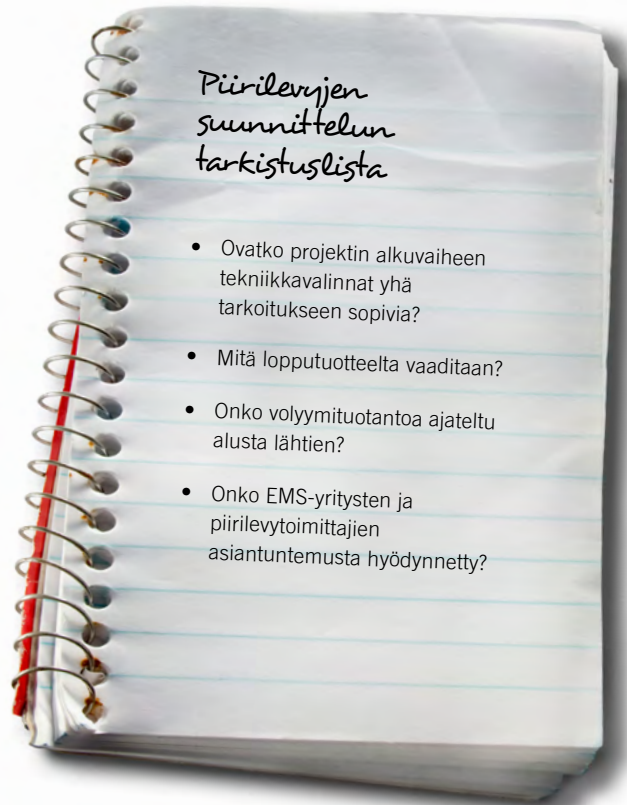 Piirilevyjen
suunnittelun
tarkistuslista
• Ovatko projektin alkuvaiheen
tekniikkavalinnat yhä
tarkoitukseen sopivia?
• Mitä lopputuotteelta vaaditaan?
• Onko volyymituotantoa ajateltu
alusta lähtien?
• Onko EMS-yritysten ja
piirilevytoimittajien
asiantuntemusta hyödynnetty?